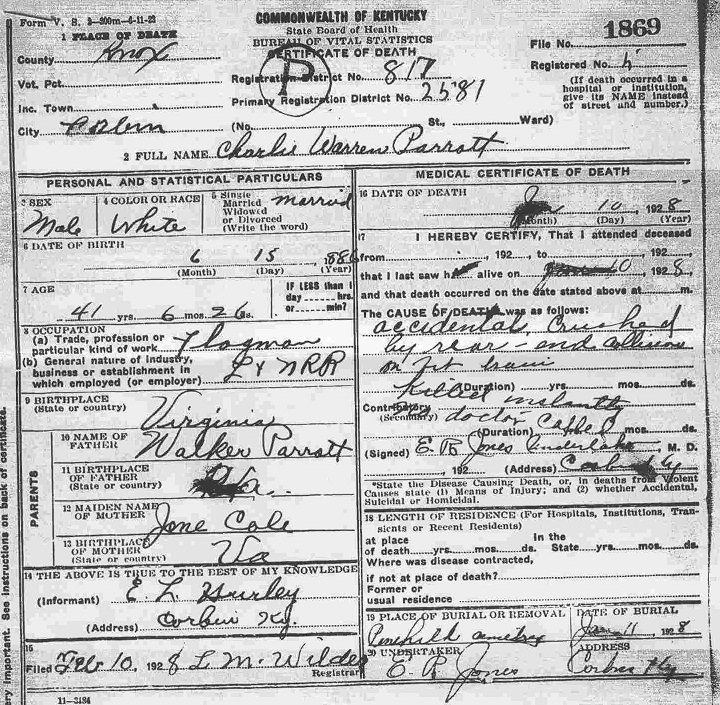 Form V. S. 3—300m-6-11-23
COMMONWEALTH OF KENTUCKY
State Board of Health
BUREAU OF VITAL STATISTICS
CERTIFICATE OF DEATH
File No. 1869
Registered No. 4
(If death occurred in a hospital or institution, give its NAME instead of street and number.)
1 PLACE OF DEATH
County Knox
Vot. Pct.
Inc. Town
City Corbin
P
Registration District No. 817
Primary Registration District No. 2581
(No. St., Ward)
2 FULL NAME Charlie Warren Parrott
PERSONAL AND STATISTICAL PARTICULARS
3 SEX
Male
4 COLOR OR RACE
White
5 Single Married Widowed or Divorced (Write the word)
married
6 DATE OF BIRTH
6 15 1886
(Month) (Day) (Year)
7 AGE
41 yrs. 6 mos. 26 ds.
IF LESS than 1 day hrs. or min?
8 OCCUPATION
(a) Trade, profession or particular kind of work Flagman
(b) General nature of industry, business or establishment in which employed (or employer) L & N RR
9 BIRTHPLACE
(State or country) Virginia
PARENTS
10 NAME OF FATHER Walker Parrott
11 BIRTHPLACE OF FATHER
(State or country) Va.
12 MAIDEN NAME OF MOTHER Jane Cole
13 BIRTHPLACE OF MOTHER
(State or country) Va
14 THE ABOVE IS TRUE TO THE BEST OF MY KNOWLEDGE
(Informant) E. L. Hurley
(Address) Corbin Ky.
15
Filed Feb 10, 1928 L. M. Wilder
Registrar
11-3184
MEDICAL CERTIFICATE OF DEATH
16 DATE OF DEATH
Jan 10, 1928
(Month) (Day) (Year)
17 I HEREBY CERTIFY, That I attended deceased
from , 192 , to , 192
that I last saw h alive on 10, 1928,
and that death occurred on the date stated above at m.
The CAUSE OF DEATH was as follows:
accidental, Crushed
by rear-end collision
train
Killed
(Duration) yrs. mos. ds.
Contributory
(Secondary) doctor
(Duration) mos. ds.
(Signed) E. R. Jones Undertaker M. D.
, 192 (Address) Corbin Ky
*State the Disease Causing Death, or, in deaths from Violent Causes state (1) Means of Injury; and (2) whether Accidental, Suicidal or Homicidal.
18 LENGTH OF RESIDENCE (For Hospitals, Institutions, Transients or Recent Residents)
at place of death yrs. mos. ds. In the State yrs. mos. ds.
Where was disease contracted,
if not at place of death?
Former or usual residence
19 PLACE OF BURIAL OR REMOVAL
Pinehill Cemetery
DATE OF BURIAL
Jan 11, 1928
20 UNDERTAKER
E. R. Jones
ADDRESS
Corbin Ky
ry important. See instructions on back of certificate.